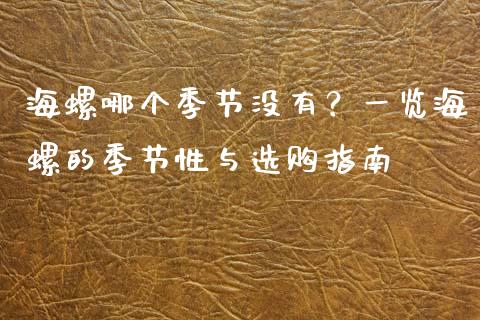 海螺哪个季节没有？一览海
螺的季节性与选购指南